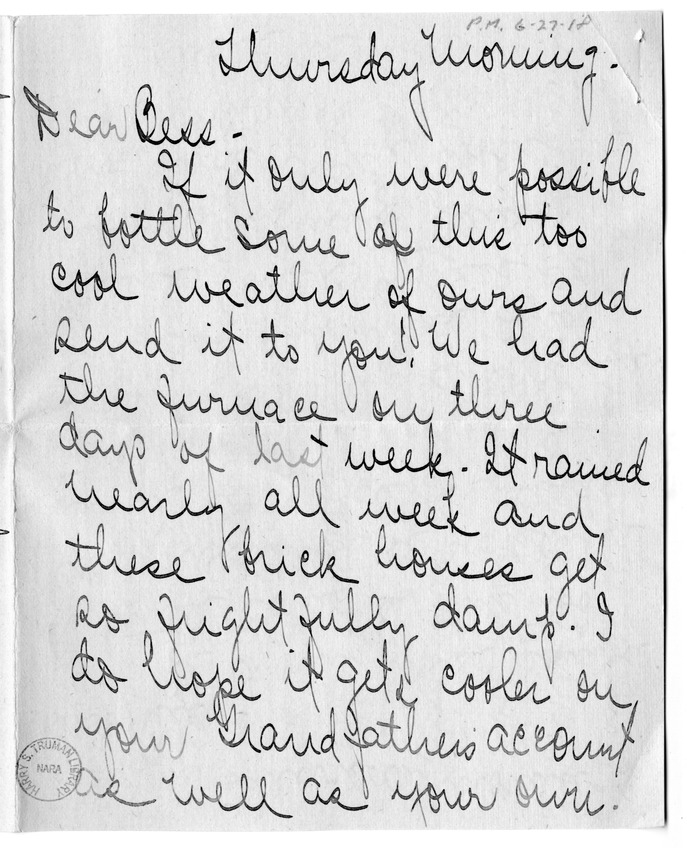 P.M. 6-27-18
Thursday Morning.
Dear Bess -
If it only were possible
to bottle some of this too
cool weather of ours and
send it to you! We had
the furnace on three
days of last week. It rained
nearly all week and
these brick houses get
so frightfully damp. I
do hope it gets cooler on
your Grandfather's account
as well as your own.
HARRY S. TRUMAN LIBRARY
NARA